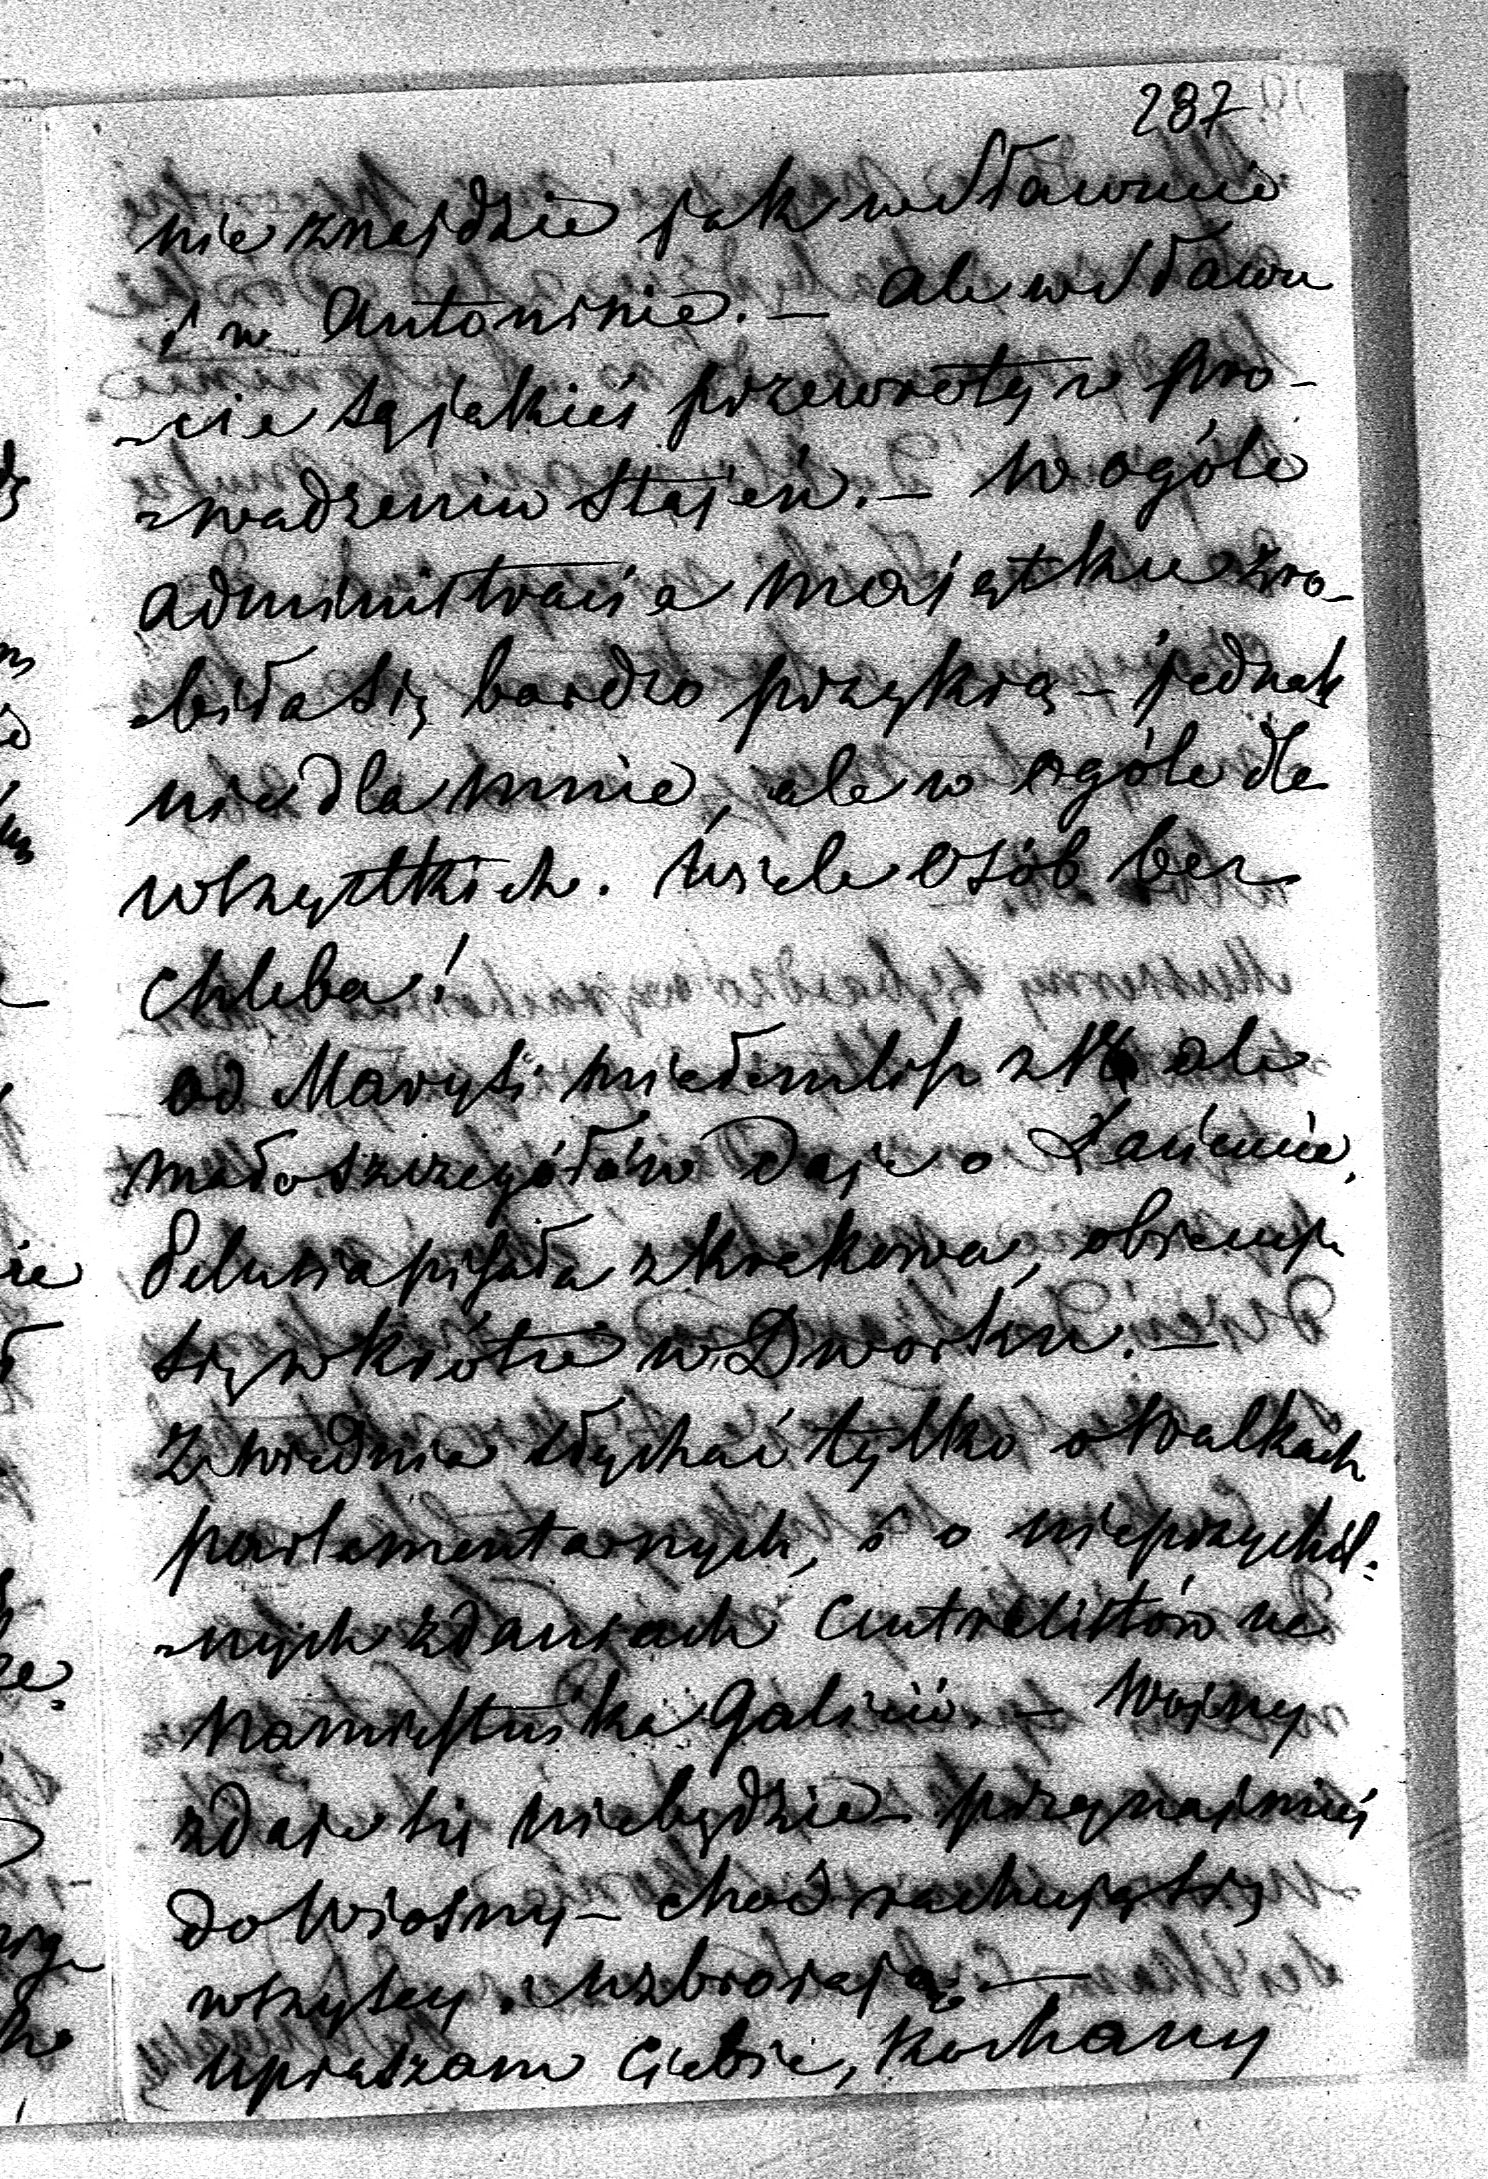 287
nie znajdzie jak w Sławucie
i w Antoninie. — ale w Sławu
-cie są jakieś przewroty w pro-
-wadzeniu stajen. — W ogóle
administracia majątku zro-
-biła się bardzo przykrą — jednak
nie dla mnie, ale w ogóle dla
wszystkich. Wiele osób bez
chleba!
od Marysi miałem list z 16 ale
mało szczegółów daje o Łańcucie.
Delusia pisała z Krakowa, obiecuje
się wkrótce w Dworku. —
Z Wiednia słychać tylko o walkach
parlamentarnych, i o nieprzychil-
-nych zdaniach Centralistów na
Namiestnika Galicii. — Wojny
zdaje się nie będzie — przynajmniej
do Wiosny — choć rachują się
wszyscy i uzbrajają. —
upraszam Ciebie, Kochany